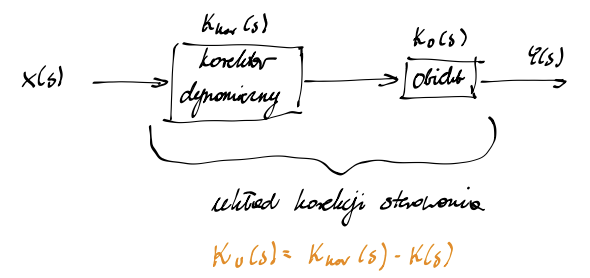 K_kor(s)
K_o(s)
X(s)
korektor
dynamiczny
obiekt
Y(s)
układ korekcji sterowania
K_u(s) = K_kor(s) - K(s)